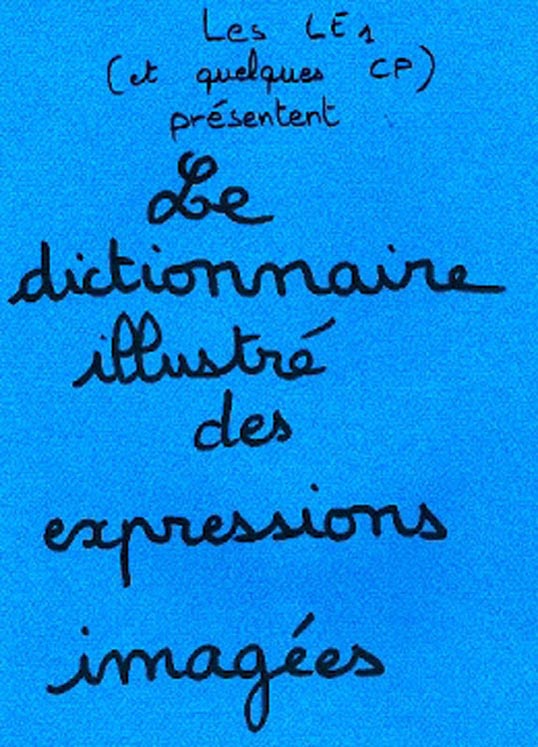 Les CE1
(et quelques CP)
présentent
Le
dictionnaire
illustré
des
expressions
imagées